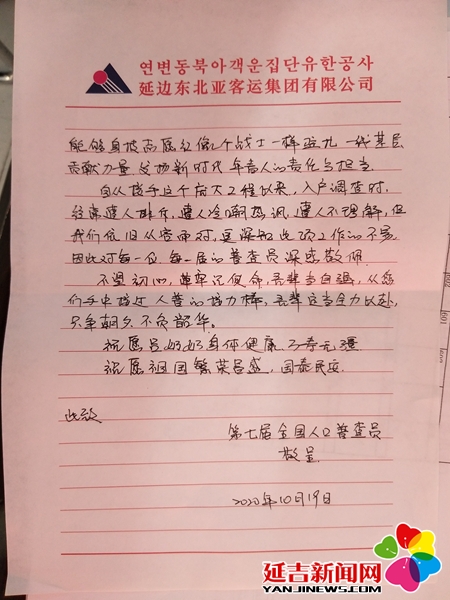 연변동북아객운집단유한공사
延边东北亚客运集团有限公司
能够身披马甲红像个战士一样驻扎一线基层
贡献力量 发扬新时代年青人的责任与担当
自从接手这个庞大工程以来,入户调查时,
经常遭人排斥,遭人冷嘲热讽,遭人不理解,但
我们依旧从容面对,更深知此项工作的不易
因此对每一位每一届的普查员深感敬佩
不忘初心,牢记使命,吾辈当自强,从您
们手中接过人普的接力棒,吾辈定当全力以赴,
只争朝夕不负韶华。
祝愿吕奶奶身体健康 万寿无疆
祝愿祖国繁荣昌盛,国泰民安
此致
第七届全国人口普查员
敬呈
2020年10月19日
延吉新闻网
YANJINEWS.COM